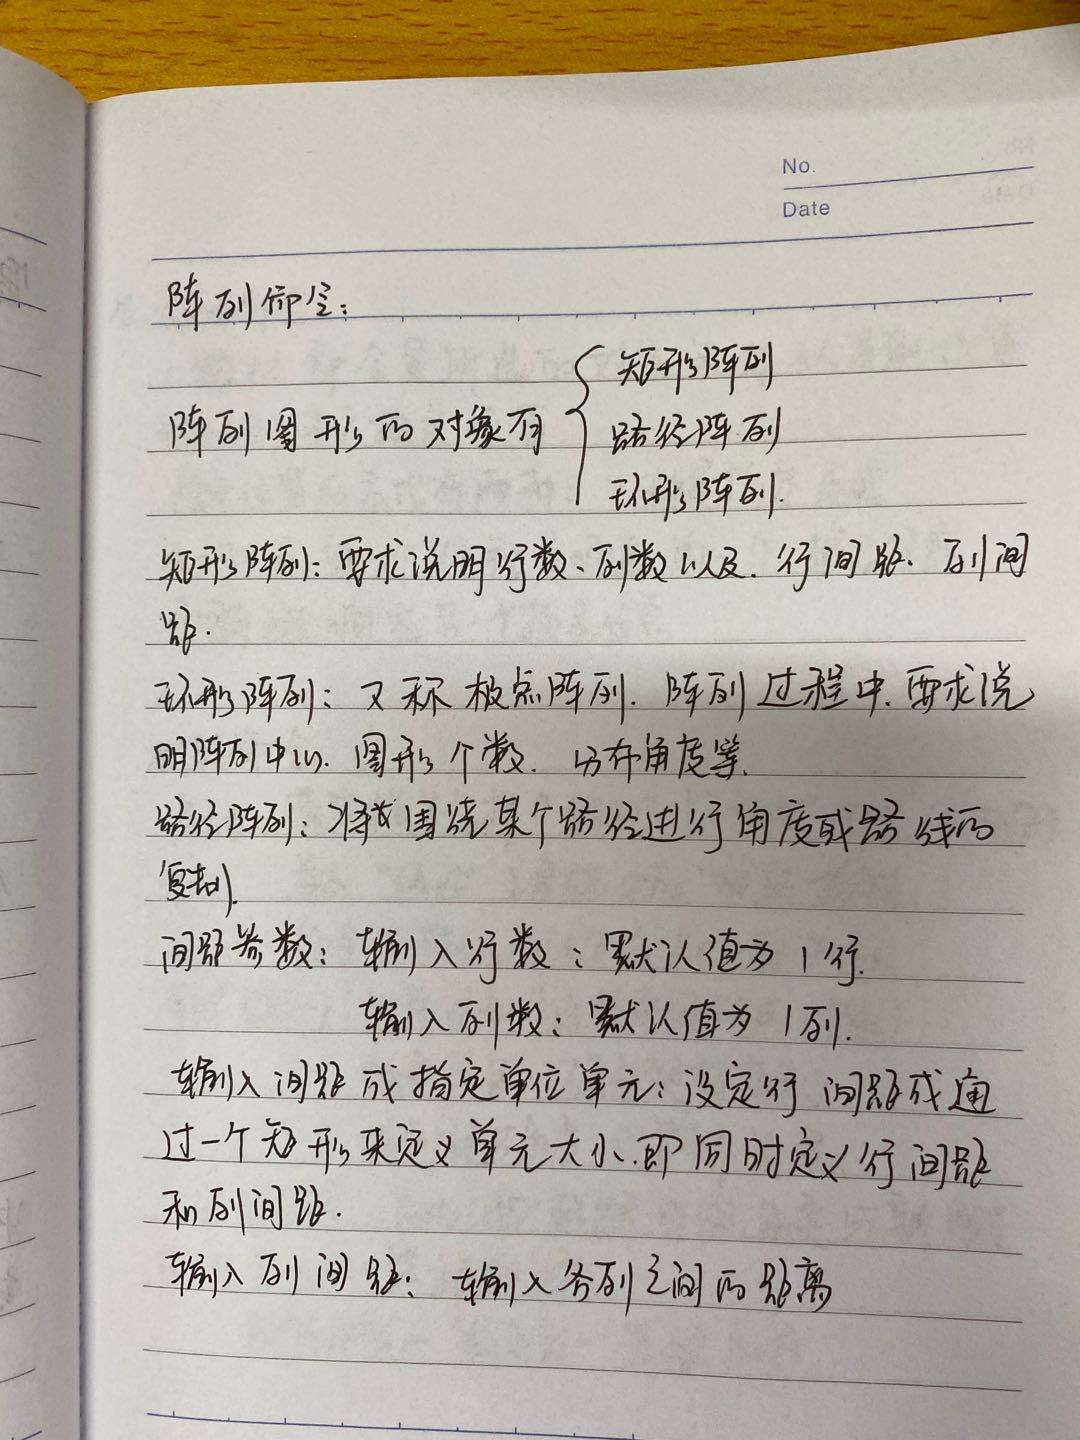 No.
Date
阵列命令:
矩形阵列
阵列图形的对象有 路径阵列
环形阵列.
矩形阵列: 要求说明行数、列数以及.行间距、列间
距.
环形阵列: 又称极点阵列. 阵列过程中.要求说
明阵列中心. 图形个数. 分布角度等.
路径阵列: 将其围绕某个路径进行角度或路线的
复制.
间距参数: 输入行数: 默认值为1行.
输入列数: 默认值为1列.
输入间距或指定单位单元: 设定行间距或通
过一个矩形来定义单元大小.即同时定义行间距
和列间距.
输入列间距: 输入各列之间的距离